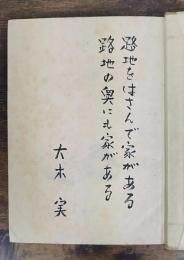 路地をはさんで家がある
路地の奥にも家がある
大木実